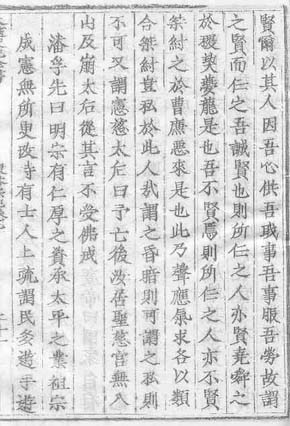 賢爾以其人因吾心供吾職事吾事服吾勞故謂
之賢而仁之吾誠賢也則所仁之人亦賢堯舜之
於稷契夔龍是也吾不賢焉則所仁之人亦不賢
桀紂之於曹廉惡來是也此乃聲應氣求各以類
合桀紂豈私於此人哉謂之昏暗則可謂之私則
不可又謂憲慈太后曰予亡後汝居聖慈宮無入
山及崩太后從其言不受佛戒
潘孚先曰明宗有仁厚之資承太平之業祖宗
成憲無所更改時有士人上疏謂民多遊手遊